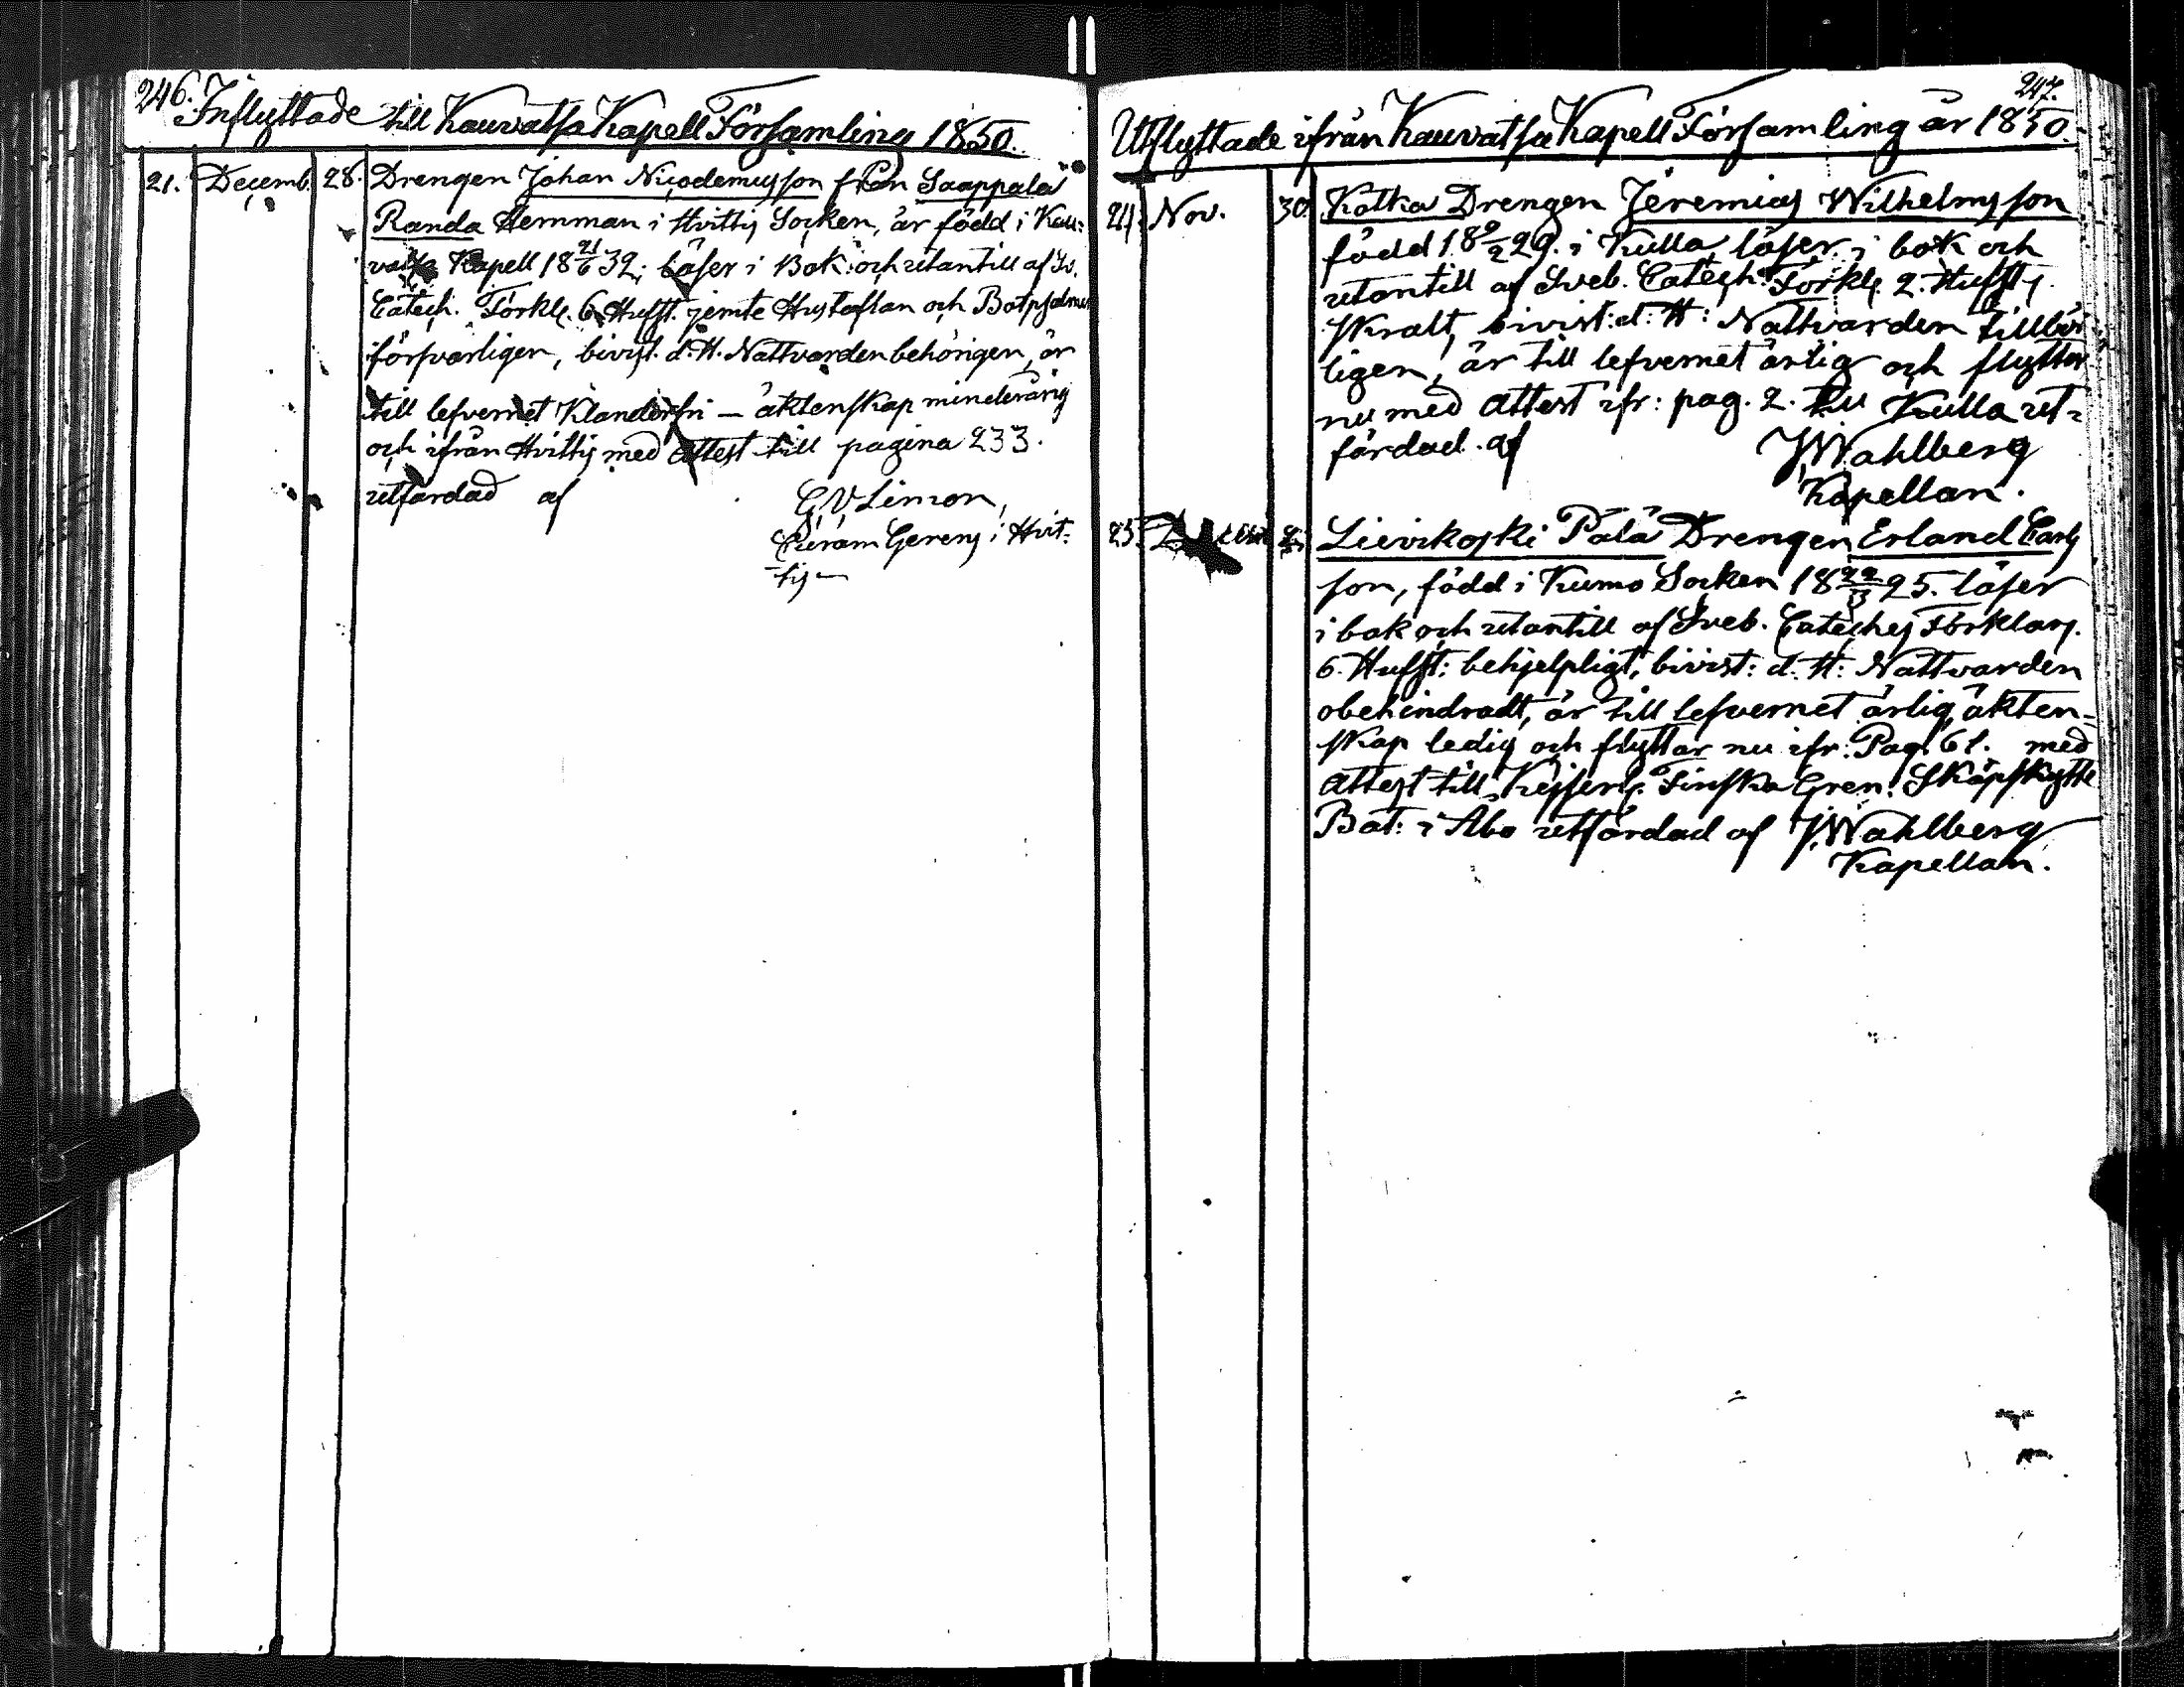 246.
Inflyttade till Kauvatsa Kapell Församling 1850.
21. Decemb. 28. Drengen Johan Nicodemusson från Saappala
Randa Hemman i Hvittis Socken, är född i Kau-
vatsa Kapell 18 21/6 32; läser i Bok och utantill af Sv.
Catech. Förkls. 6 Hufst. jemte Hustaflan och Botpsalmer
försvarligen, bivist. d. H. Nattvarden behörigen, är
till lefvernet Klanderfri — äktenskap minderårig
och ifrån Hvittis med Attest till pagina 233.
utfärdad af G. V. Limon,
Gerens i Hvit-
tis
247.
Utflyttade ifrån Kauvatsa Kapell Församling år 1850.
24. Nov. 30. Kotka Drengen Jeremias Wilhelmsson
född 18 9/2 29. i Kulla läser i bok och
utantill af Sveb. Catech. Förkls. 2. Hufst.
skralt, bivist: d: H: Nattvarden tillbör
ligen, är till lefvernet ärlig och flyttar
nu med Attest ifr: pag. 2. till Kulla ut-
färdad af J. Wahlberg
Kapellan.
25. Lievikoski Pälä Drengen Erland Carls
son, född i Kumo Socken 18 22/ 25. läser
i bok och utantill af Sveb. Cateches Förklars.
6. Hufst: behjelpligt, bivist: d. H: Nattvarden
obehindradt, är till lefvernet ärlig, äkten-
skap ledig och flyttar nu ifr: Pag. 61. med
Attest till Kejserl. Finska Gren. Skarpskytte
Bat: i Åbo utfärdad af J. Wahlberg
Kapellan.